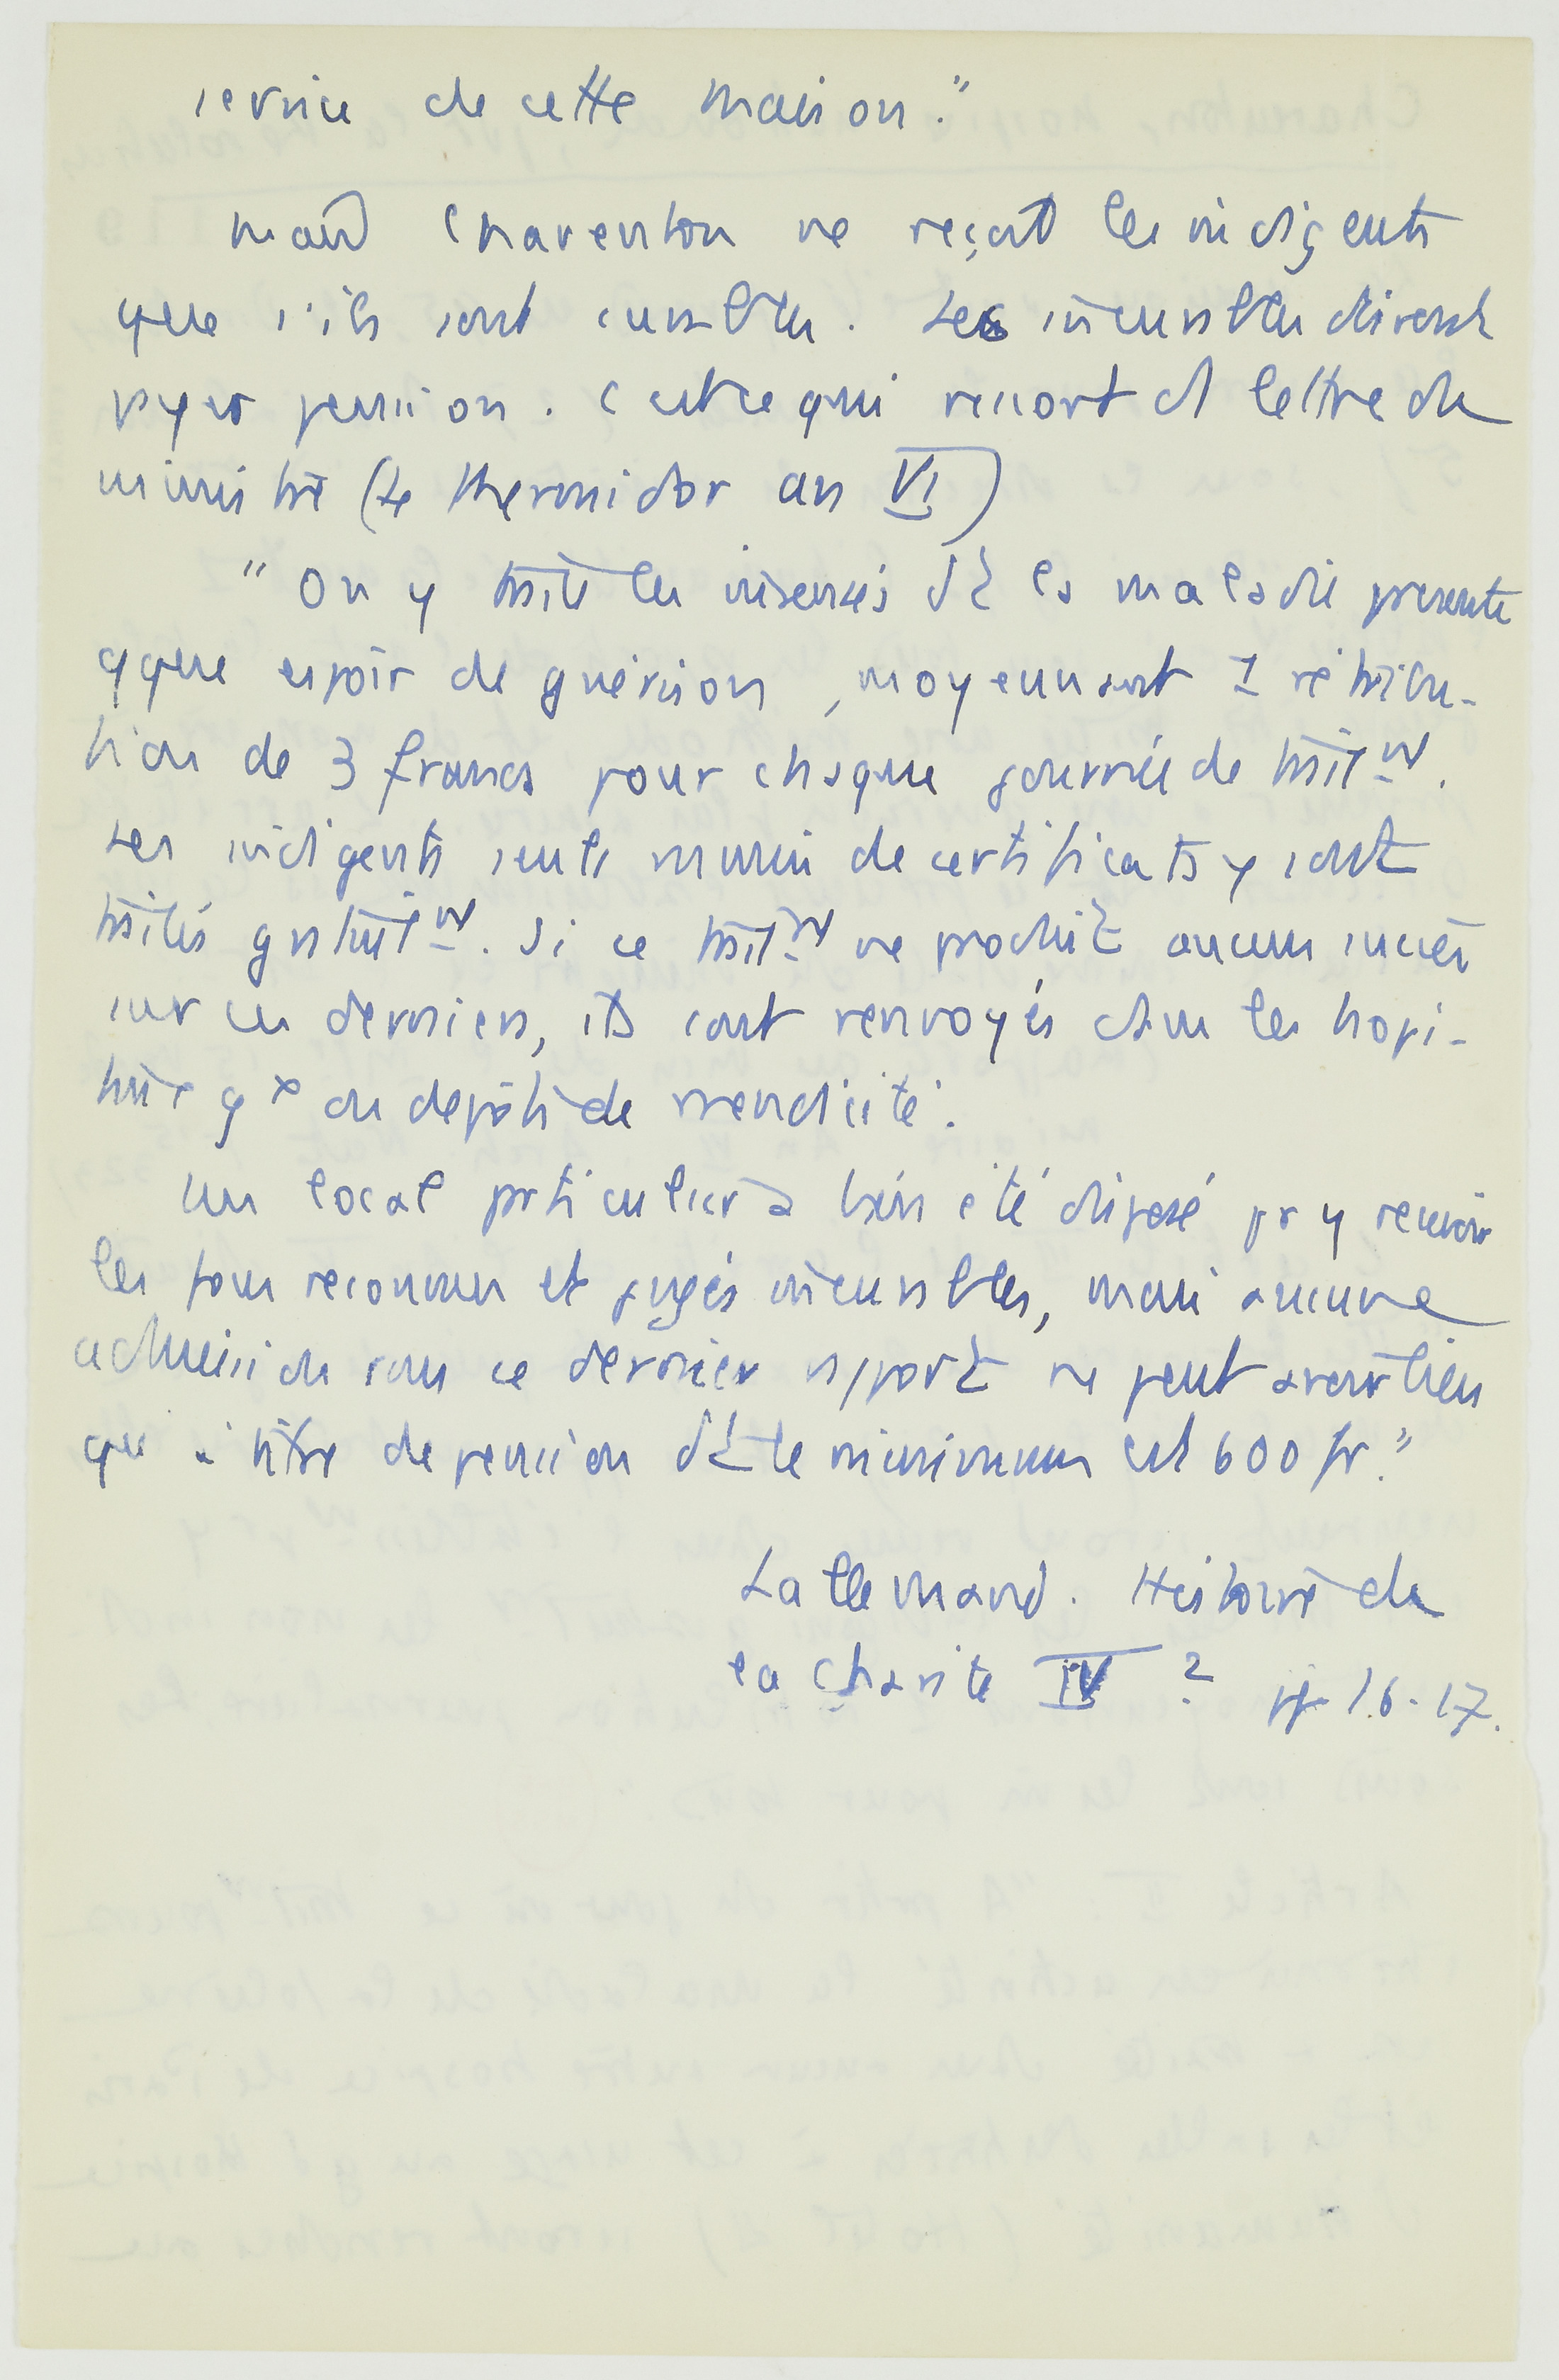 service de cette maison."
Mais Charenton ne reçoit les indigents
que s'ils sont curables. Les incurables doivent
payer pension. C'est ce qui ressort d lettre du
ministre (4 thermidor an VI)
"On y traite les insensés dt la maladie présente
qque espoir de guérison, moyennant 1 rétribu-
tion de 3 francs pour chaque journée de trait^mt.
Les indigents seuls munis de certificats y sont
traités gratuit^mt. Si ce trait^mt ne produit aucun succès
sur ces derniers, ils sont renvoyés dans les hopi-
taux gx ou dépôts de mendicité.
Un local particulier a bien été disposé pr y recevoir
les fous reconnus et jugés incurables, mais aucune
admission sous ce dernier rapport ne peut avoir lieu
qu'à titre de pension dt le minimum est 600 fr."
Lallemand. Histoire de
la Charité IV ? pp 16-17.